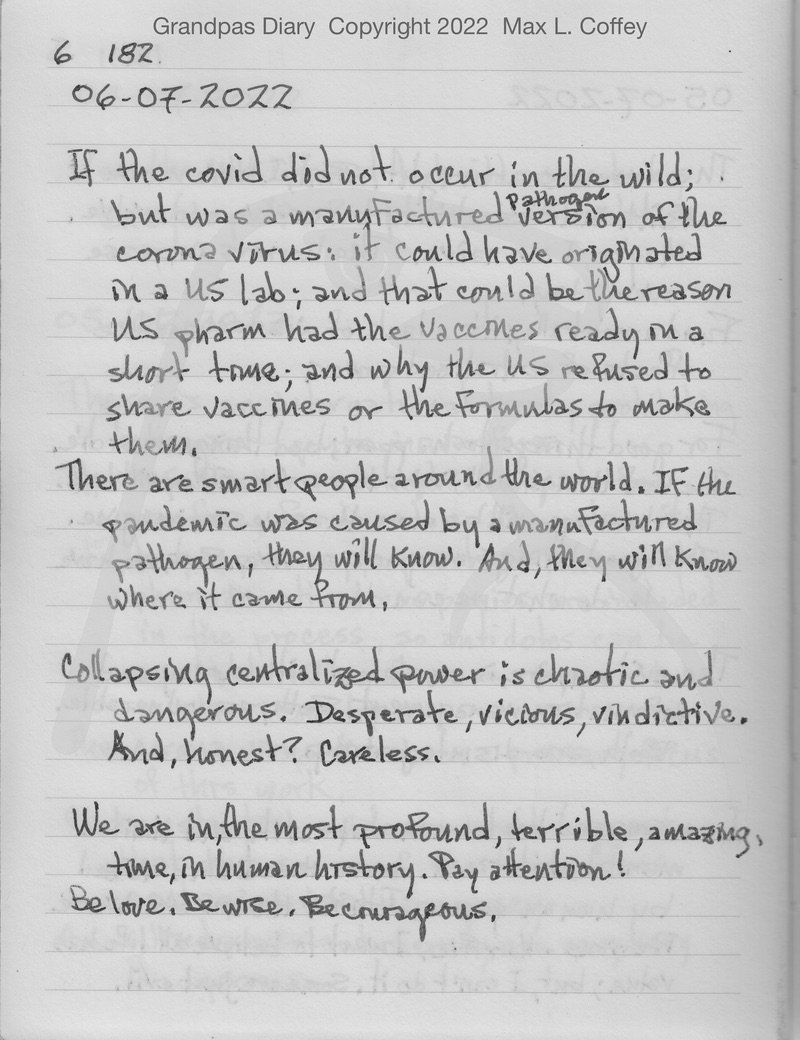 Grandpas Diary Copyright 2022 Max L. Coffey
6 182
06-07-2022
If the covid did not occur in the wild;
pathogen
but was a manufactured version of the
corona virus: it could have originated
in a US lab; and that could be the reason
US pharm had the vaccines ready in a
short time; and why the US refused to
share vaccines or the formulas to make
them.
There are smart people around the world. If the
pandemic was caused by a manufactured
pathogen, they will know. And, they will know
where it came from.
Collapsing centralized power is chaotic and
dangerous. Desperate, vicious, vindictive.
And, honest? Careless.
We are in, the most profound, terrible, amazing,
time, in human history. Pay attention!
Be love. Be wise. Be courageous.